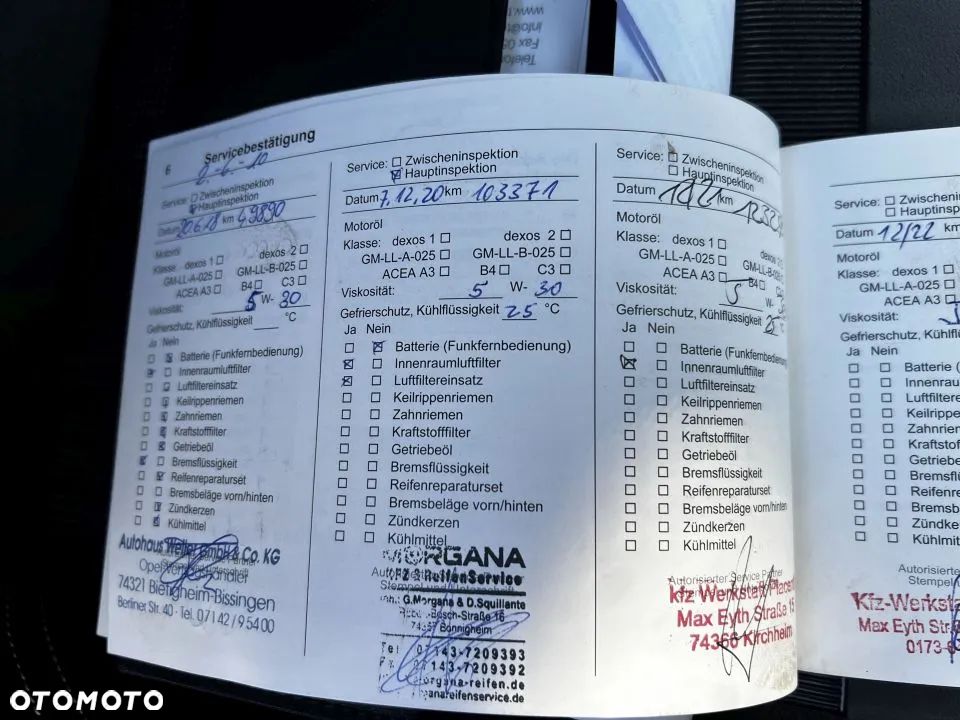 www.
info@
Fax 0
Telefon
6
Servicebestätigung
2.-6.-10
Service: Zwischeninspektion
Hauptinspektion
Datum 20.6.18 km 49890
Motoröl
Klasse: dexos 1 dexos 2
GM-LL-A-025 GM-LL-B-025
ACEA A3 B4 C3
Viskosität: 5 W- 30
Gefrierschutz, Kühlflüssigkeit °C
Ja Nein
Batterie (Funkfernbedienung)
Innenraumluftfilter
Luftfiltereinsatz
Keilrippenriemen
Zahnriemen
Kraftstofffilter
Getriebeöl
Bremsflüssigkeit
Reifenreparaturset
Bremsbeläge vorn/hinten
Zündkerzen
Kühlmittel
Autohaus Weller GmbH & Co. KG
74321 Bietigheim-Bissingen
Berliner Str. 40 · Tel. 07142/95400
Service: Zwischeninspektion
Hauptinspektion
Datum 7,12,20 km 103371
Motoröl
Klasse: dexos 1 dexos 2
GM-LL-A-025 GM-LL-B-025
ACEA A3 B4 C3
Viskosität: 5 W- 30
Gefrierschutz, Kühlflüssigkeit 25 °C
Ja Nein
Batterie (Funkfernbedienung)
Innenraumluftfilter
Luftfiltereinsatz
Keilrippenriemen
Zahnriemen
Kraftstofffilter
Getriebeöl
Bremsflüssigkeit
Reifenreparaturset
Bremsbeläge vorn/hinten
Zündkerzen
Kühlmittel
MORGANA
KFZ & ReifenService
Inh.: G.Morgana & D.Squillante
Bosch-Straße 16
Bönnigheim
Tel 07143-7209393
07143-7209392
morgana-reifen.de
morganareifenservice.de
Service: Zwischeninspektion
Hauptinspektion
Datum km
Motoröl
Klasse: dexos 1 dexos 2
GM-LL-A-025 GM-LL-B-025
ACEA A3 B4
Viskosität: 5 W-
Gefrierschutz, Kühlflüssigkeit 25 °C
Ja Nein
Batterie (Funkfernbedienung)
Innenraumluftfilter
Luftfiltereinsatz
Keilrippenriemen
Zahnriemen
Kraftstofffilter
Getriebeöl
Bremsflüssigkeit
Reifenreparaturset
Bremsbeläge vorn/hinten
Zündkerzen
Kühlmittel
Autorisierter Service Partner
kfz Werkstatt
Max Eyth Straße 15
74366 Kirchheim
Service: Zwischeninspektion
Hauptinspektion
Datum 12/22 km
Motoröl
Klasse: dexos 1
GM-LL-A-025
ACEA A3
Viskosität: 5
Gefrierschutz, Kühlflüssigkeit
Ja Nein
Batterie (
Innenraumluftfilter
Luftfilter
Keilripper
Zahnriem
Kraftstof
Getriebe
Bremsfl
Reifenre
Bremsb
Zündke
Kühlmitt
Autorisierter
Stempel
Kfz-Werksta
Max Eyth Str
0173-6
OTOMOTO